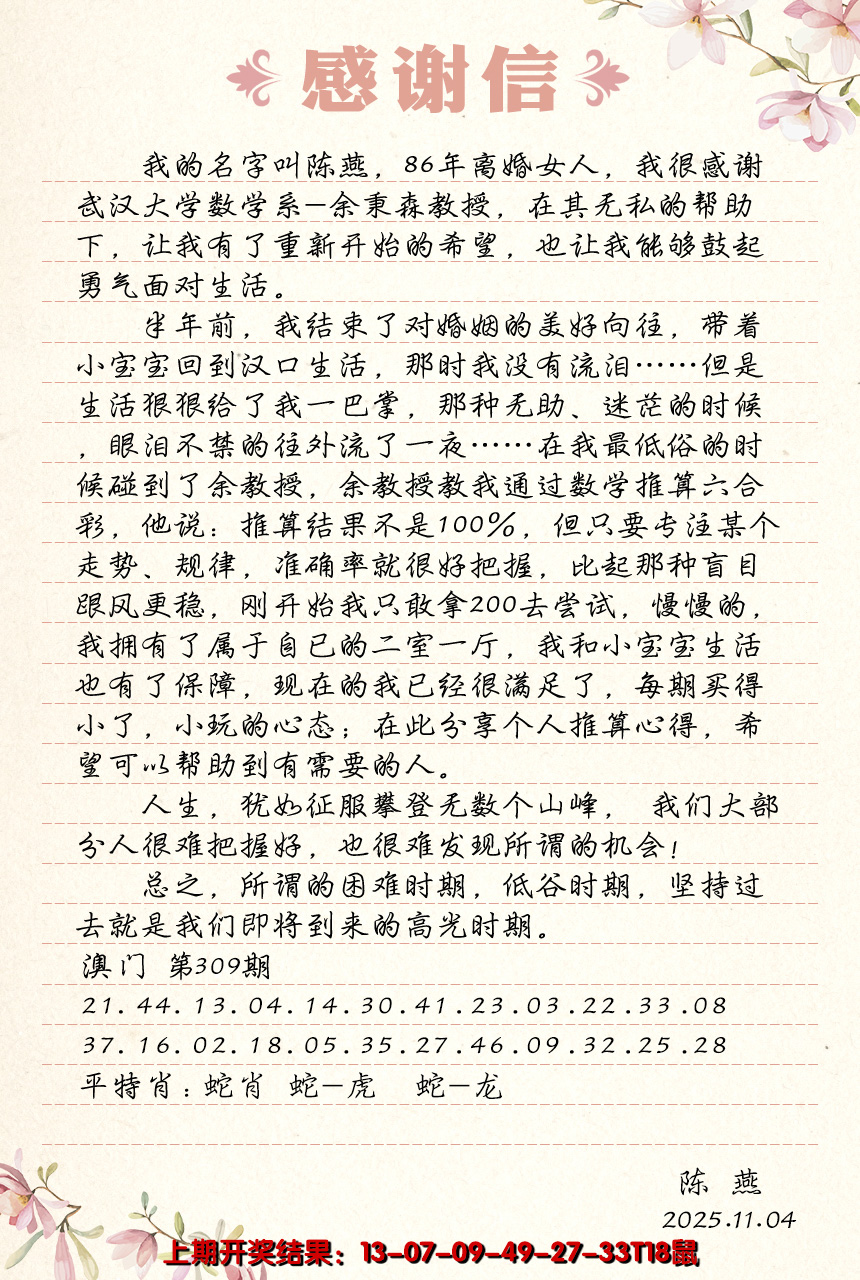 感谢信
我的名字叫陈燕，86年离婚女人，我很感谢
武汉大学数学系—余秉森教授，在其无私的帮助
下，让我有了重新开始的希望，也让我能够鼓起
勇气面对生活。
半年前，我结束了对婚姻的美好向往，带着
小宝宝回到汉口生活，那时我没有流泪……但是
生活狠狠给了我一巴掌，那种无助、迷茫的时候
，眼泪不禁的往外流了一夜……在我最低俗的时
候碰到了余教授，余教授教我通过数学推算六合
彩，他说：推算结果不是100%，但只要专注某个
走势、规律，准确率就很好把握，比起那种盲目
跟风更稳，刚开始我只敢拿200去尝试，慢慢的，
我拥有了属于自已的二室一厅，我和小宝宝生活
也有了保障，现在的我已经很满足了，每期买得
小了，小玩的心态；在此分享个人推算心得，希
望可以帮助到有需要的人。
人生，犹如征服攀登无数个山峰， 我们大部
分人很难把握好，也很难发现所谓的机会！
总之，所谓的困难时期，低谷时期，坚持过
去就是我们即将到来的高光时期。
澳门 第309期
21.44.13.04.14.30.41.23.03.22.33.08
37.16.02.18.05.35.27.46.09.32.25.28
平特肖：蛇肖 蛇—虎 蛇—龙
陈 燕
2025.11.04
上期开奖结果：13-07-09-49-27-33T18鼠